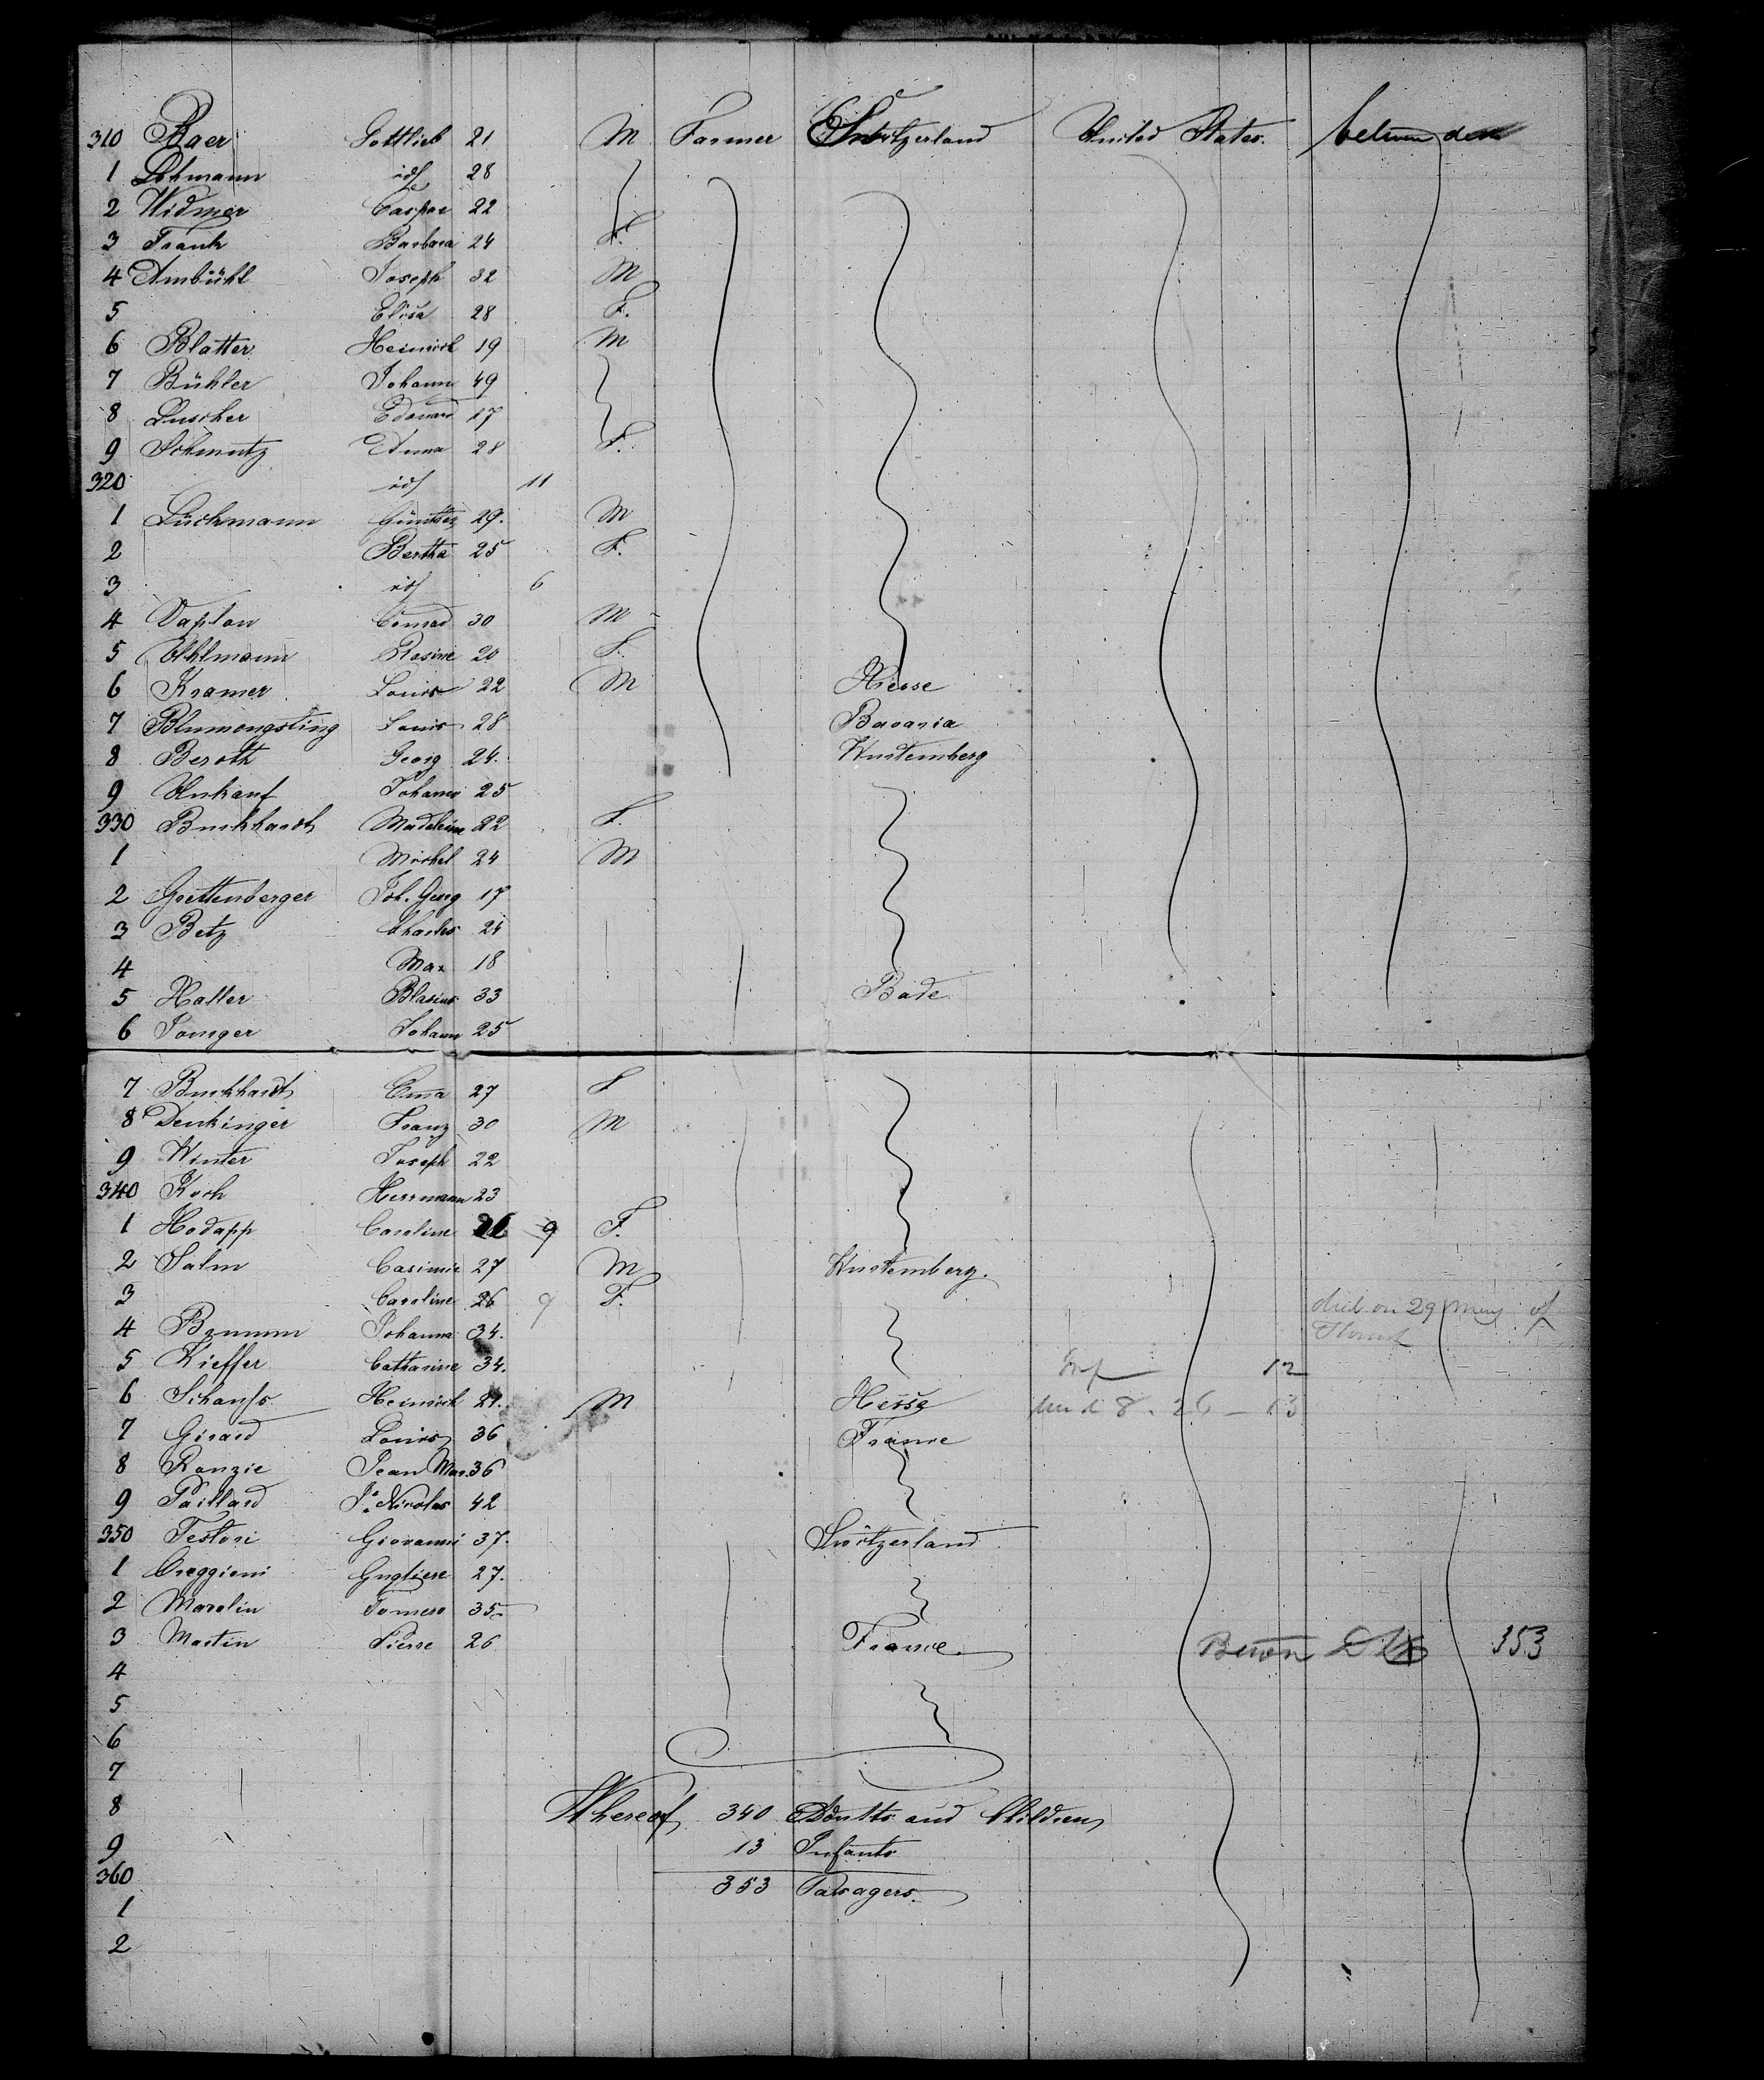 310 Baer Gottlieb 21 M Farmer Switzerland United States. between deck
1 Lehmann id 28
2 Widmer Caspar 22
3 Frank Barbara 24 F.
4 Ambühl Joseph 32 M
5 Elisa 28 F.
6 Blatter Heinrich 19 M
7 Bühler Johann 49
8 Luscher Edouard 17
9 Schmutz Anna 28 F.
320 id 11
1 Luchmann Günther 29. M
2 Bertha 25 F.
3 id 6
4 Conrad 30 M
5 Uhlmann Rosine 20 F.
6 Kramer Louis 22 M Hesse
7 Louis 28 Bavaria
8 Beroth Georg 24. Wurtemberg
9 Unkauf Johann 25
330 Burkhardt Madeleine 22 F.
1 Michel 24 M
2 Goettenberger Joh. Georg 17
3 Betz Charles 24
4 Max 18
5 Haller Blasius 33 Bade
6 Johann 25
7 Burkhardt Emma 27 F
8 Denkinger Franz 30 M
9 Winter Joseph 22
340 Koch Herrmann 23
1 Hodapp Caroline 26 9 F.
2 Salm Casimir 27 M Wurtemberg.
3 Caroline 26 9 F. died on 29 May of
4 Johanna 34.
5 Kieffer Catharine 34. 12
6 Heinrich 21. M Hesse 8. 26 - 13
7 Girard Louis 36 France
8 Ranzie Jean Mar. 36
9 Paillard Je. Nicolas 42
350 Testori Giovanni 37. Switzerland
1 Oreggioni Gugliere 27.
2 Marolin Tomero 35.
3 Martin Pierre 26 France 353
4
5
6
7
8 Whereof 340 Adults and Children
9 13 Infants
360 353 Passagers.
1
2